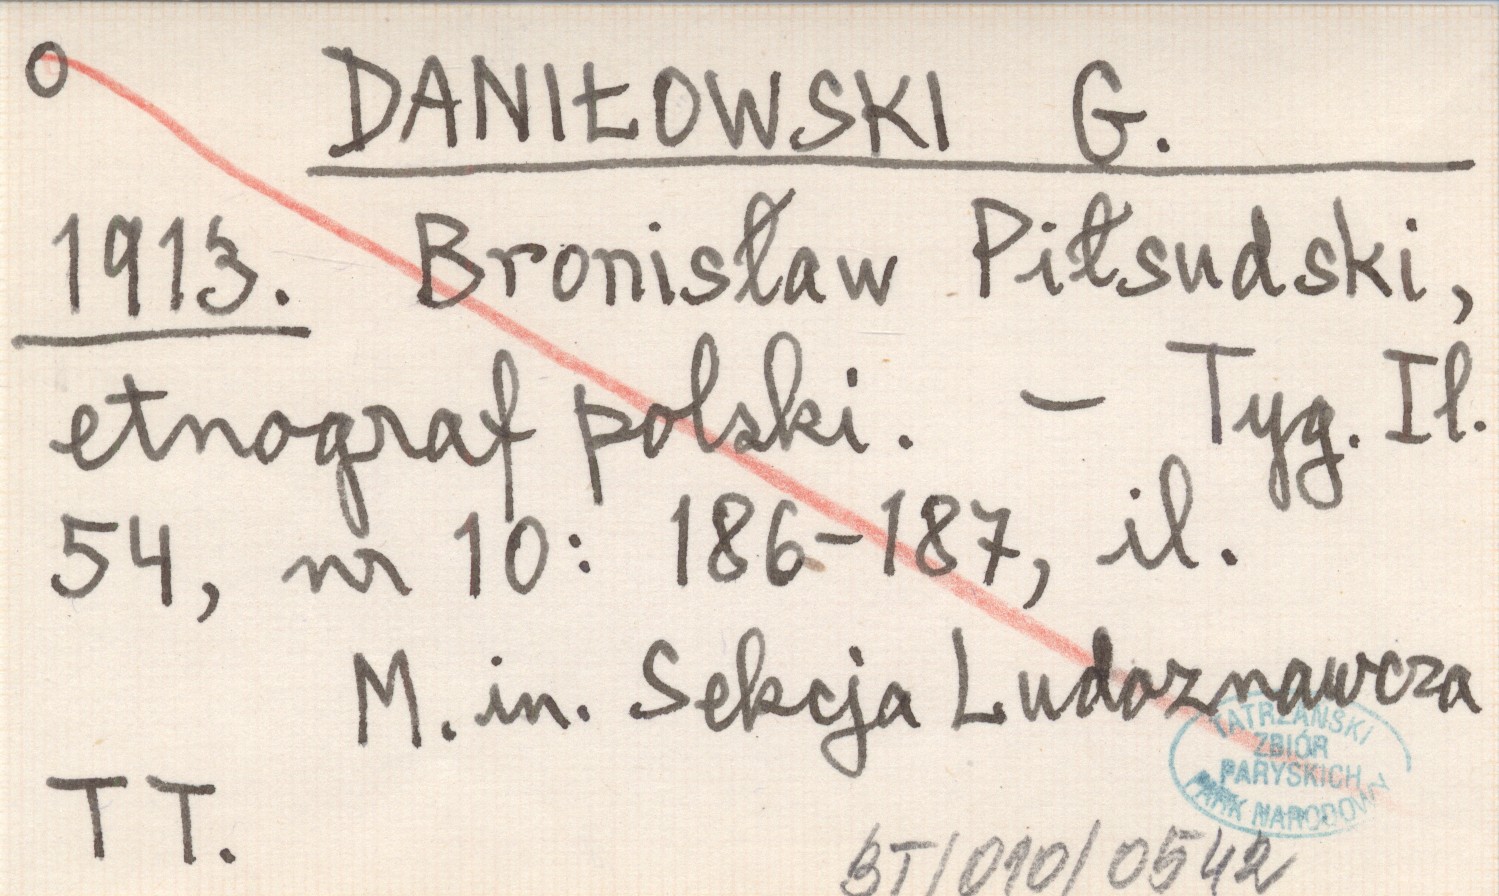 O DANIŁOWSKI G.
1913. Bronisław Piłsudski,
etnograf polski. – Tyg. Il.
54, nr 10: 186-187, il.
M. in. Sekcja Ludoznawcza
TT.
TATRZAŃSKI
ZBIÓR
PARYSKICH
PARK NARODOWY
BT/010/0542